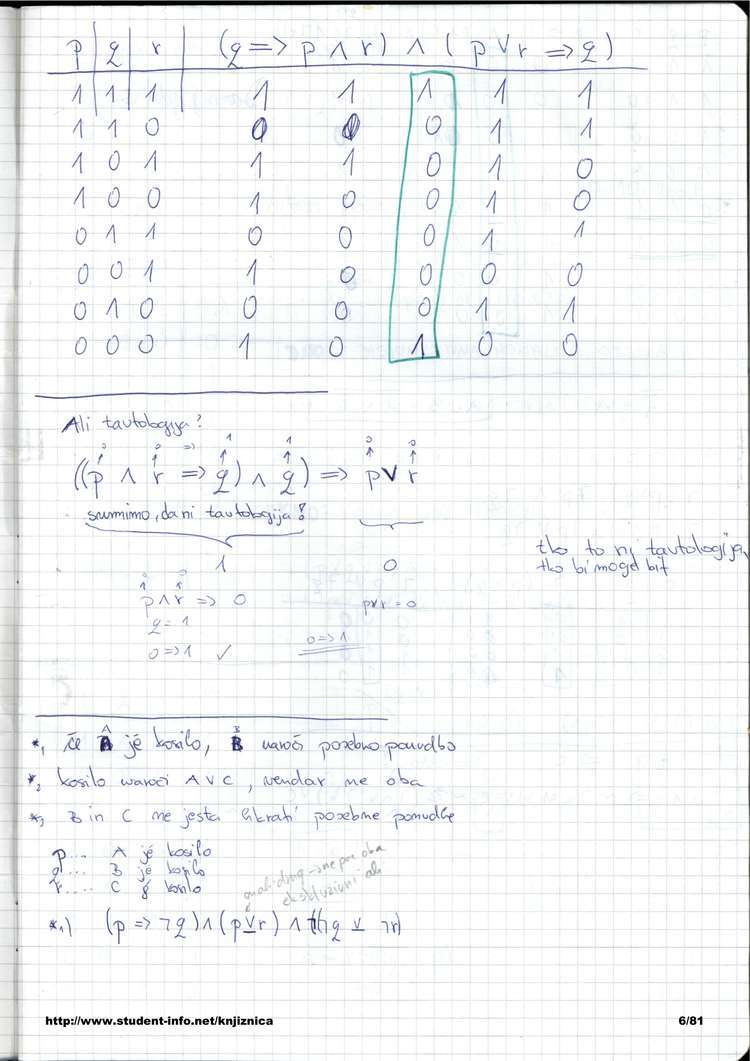 p q r (q => p ∧ r) ∧ (p ∨ r => q)
1 1 1 1 1 1 1 1
1 1 0 0 0 0 1 1
1 0 1 1 1 0 1 0
1 0 0 1 0 0 1 0
0 1 1 0 0 0 1 1
0 0 1 1 0 0 0 0
0 1 0 0 0 0 1 1
0 0 0 1 0 1 0 0
Ali tautologija?
0 0 => 1 1 0 0
((p ∧ r => q) ∧ q) => p ∨ r
sumnimo, da ni tautologija!
1 0
tko to ni tautologija,
tko bi mogel bit
0 0
p ∧ r => 0 p∨r = 0
q = 1
0 => 1 ✓ 0 => 1
*1 če A je kosilo, B naroči posebno ponudbo
*2 kosilo naroči A ∨ C, vendar ne oba
*3 B in C ne jesta hkrati posebne ponudbe
p... A je kosilo
q... B je kosilo
r... C je kosilo
ne oba
ekskluzivni ali
*1) (p => ¬q) ∧ (p ⊻ r) ∧ (¬q ⊻ ¬r)
http://www.student-info.net/knjiznica 6/81